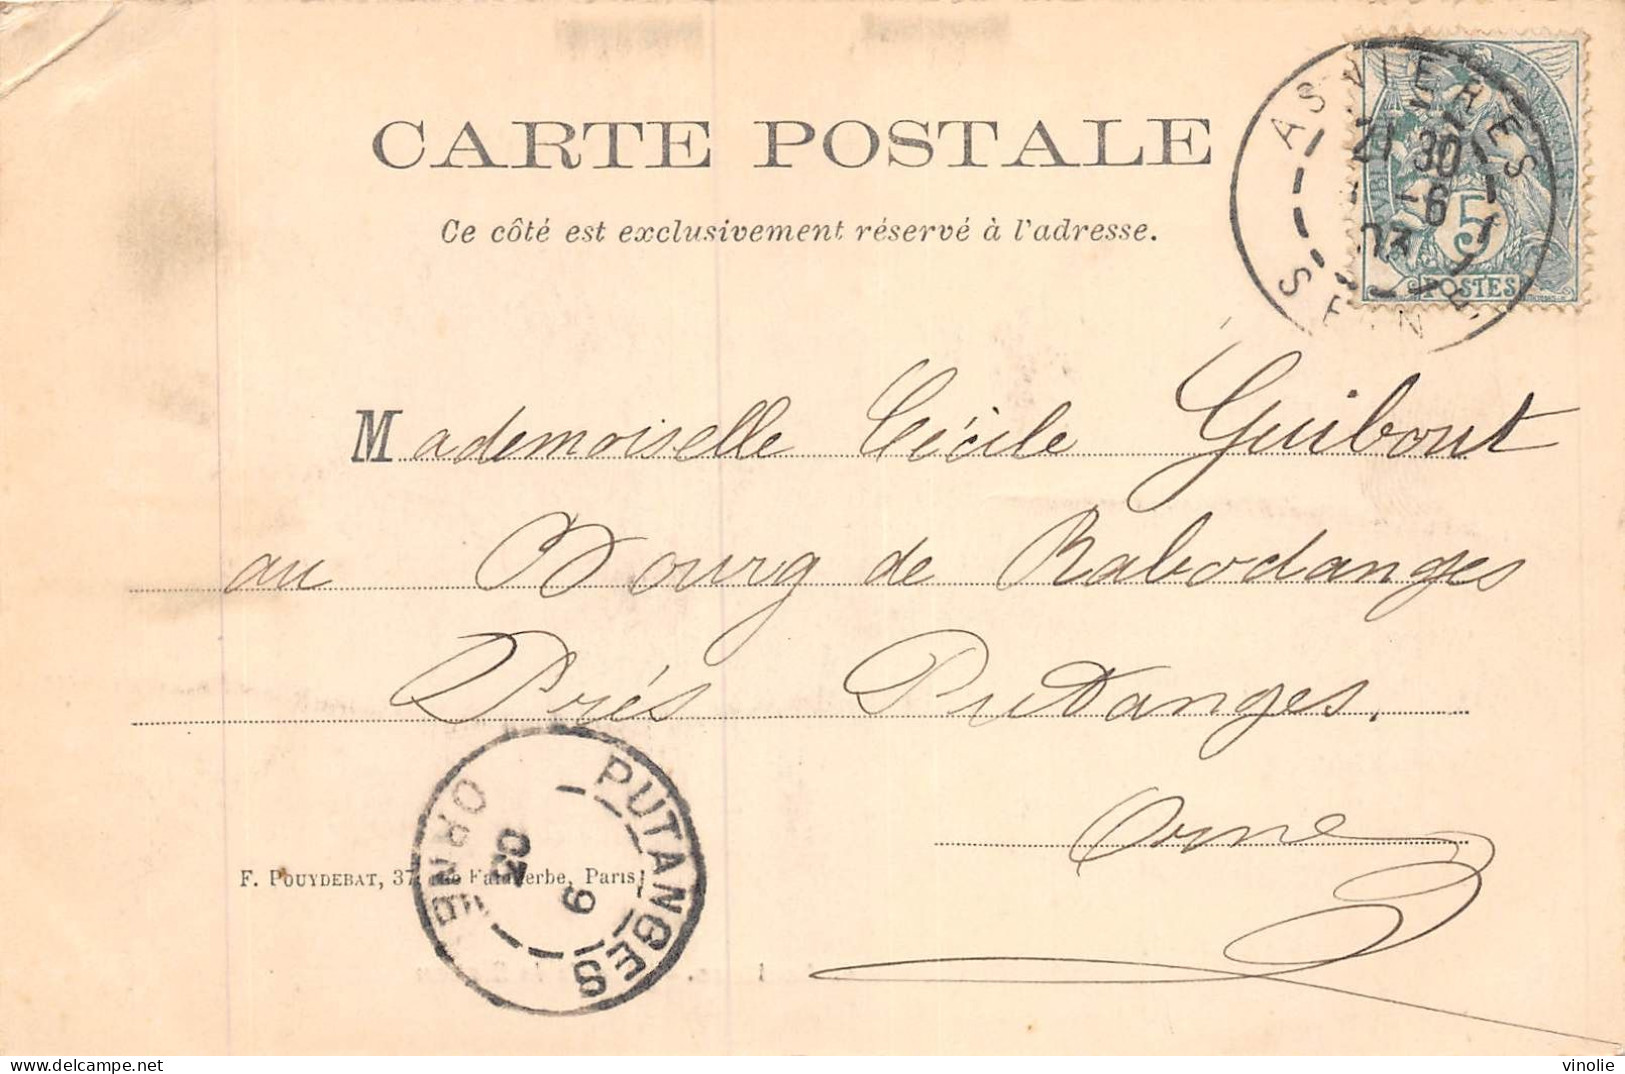 CARTE POSTALE
Ce côté est exclusivement réservé à l'adresse.
ASNIERES
21 30
-6
03
SEINE
RÉPUBLIQUE FRANÇAISE
5
POSTES
Mademoiselle Cécile Guibout
au Bourg de Rabodanges
Prés Putanges.
Orne
PUTANGES
6
03
ORNE
F. POUYDEBAT, 37, rue Faidherbe, Paris
vinolie